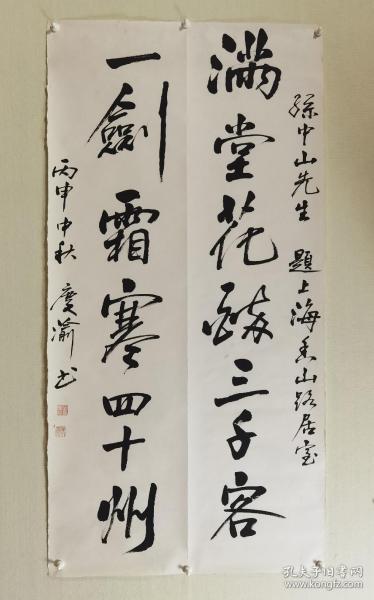 孫中山先生 題上海香山路居室
满堂花醉三千客
一劍霜寒四十州
丙申中秋 慶渝书
孔夫子旧书网
www.kongfz.com